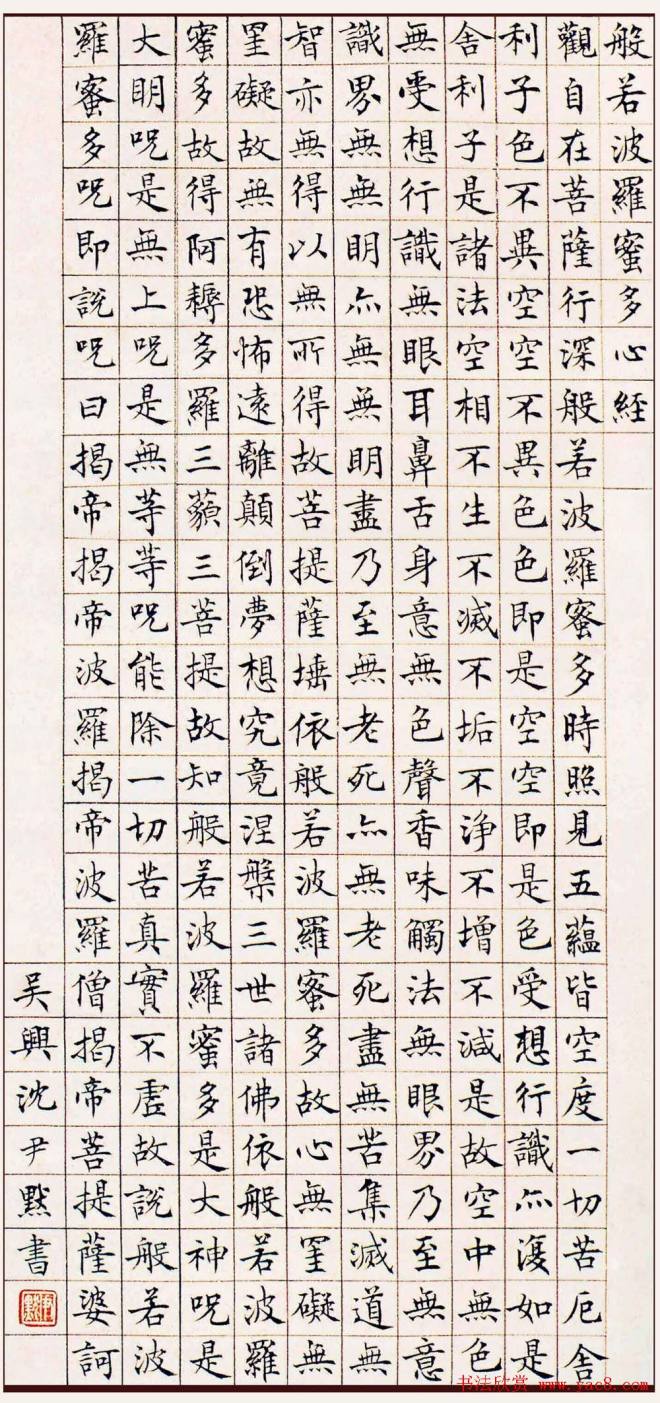 般若波羅蜜多心經
觀自在菩薩行深般若波羅蜜多時照見五蘊皆空度一切苦厄舍
利子色不異空空不異色色即是空空即是色受想行識亦復如是
舍利子是諸法空相不生不滅不垢不淨不增不減是故空中無色
無受想行識無眼耳鼻舌身意無色聲香味觸法無眼界乃至無意
識界無無明亦無無明盡乃至無老死亦無老死盡無苦集滅道無
智亦無得以無所得故菩提薩埵依般若波羅蜜多故心無罣礙無
罣礙故無有恐怖遠離顛倒夢想究竟涅槃三世諸佛依般若波羅
蜜多故得阿耨多羅三藐三菩提故知般若波羅蜜多是大神咒是
大明咒是無上咒是無等等咒能除一切苦真實不虛故說般若波
羅蜜多咒即說咒曰揭帝揭帝波羅揭帝波羅僧揭帝菩提薩婆訶
吳興沈尹默書
书法欣赏 www.yac8.com